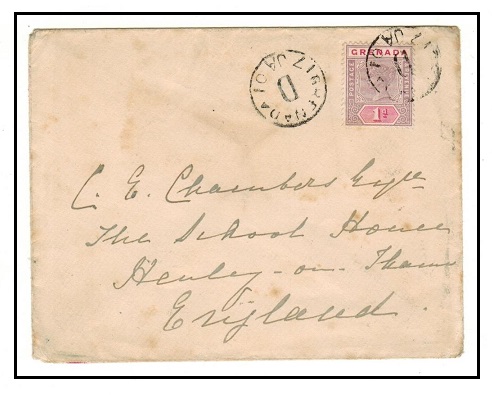 GRENADA
D
GRENADA
POSTAGE
1d
C. E. Chambers Esqre
The School House
Henley-on-Thames
England.